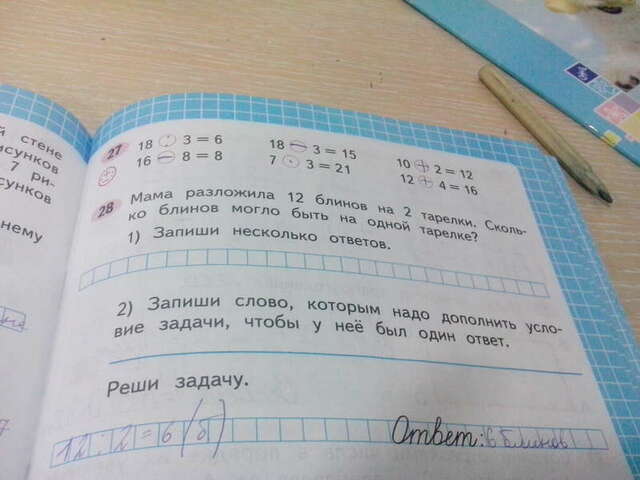 й стене
исунков
7 ри-
сунков
нему
27 18 : 3 = 6 18 − 3 = 15 10 + 2 = 12
16 − 8 = 8 7 · 3 = 21 12 + 4 = 16
28 Мама разложила 12 блинов на 2 тарелки. Сколь-
ко блинов могло быть на одной тарелке?
1) Запиши несколько ответов.
2) Запиши слово, которым надо дополнить усло-
вие задачи, чтобы у неё был один ответ.
Реши задачу.
12 : 2 = 6 (б) Ответ: 6 блинов